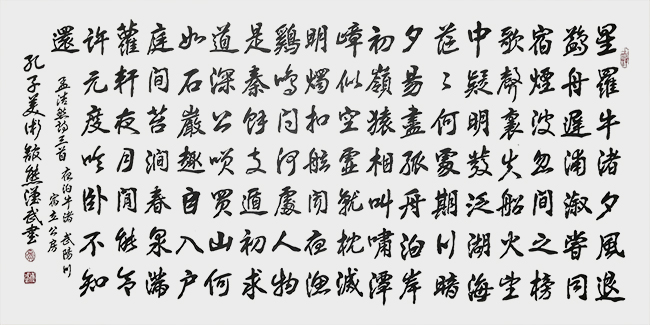 星羅牛渚夕風退
鷁舟遲浦漵嘗同
宿煙波忽間之榜
歌聲裏失船火望
中疑明發泛湖海
茫々何處期川暗
夕昜盡孤舟泊岸
初嶺猿相叫嘯潭
嶂似空虛就枕滅
明燭扣舷聞夜漁
鷄鳴問何處人物
是秦餘支遁初求
道深公咲買山何
如石巖趣自入戶
庭間苔澗春泉滿
蘿軒夜月閒能令
許元度吟卧不知
還
孟浩然詩三首 夜泊牛渚 武陽川
宿立公房
孔子美 熊漢武書